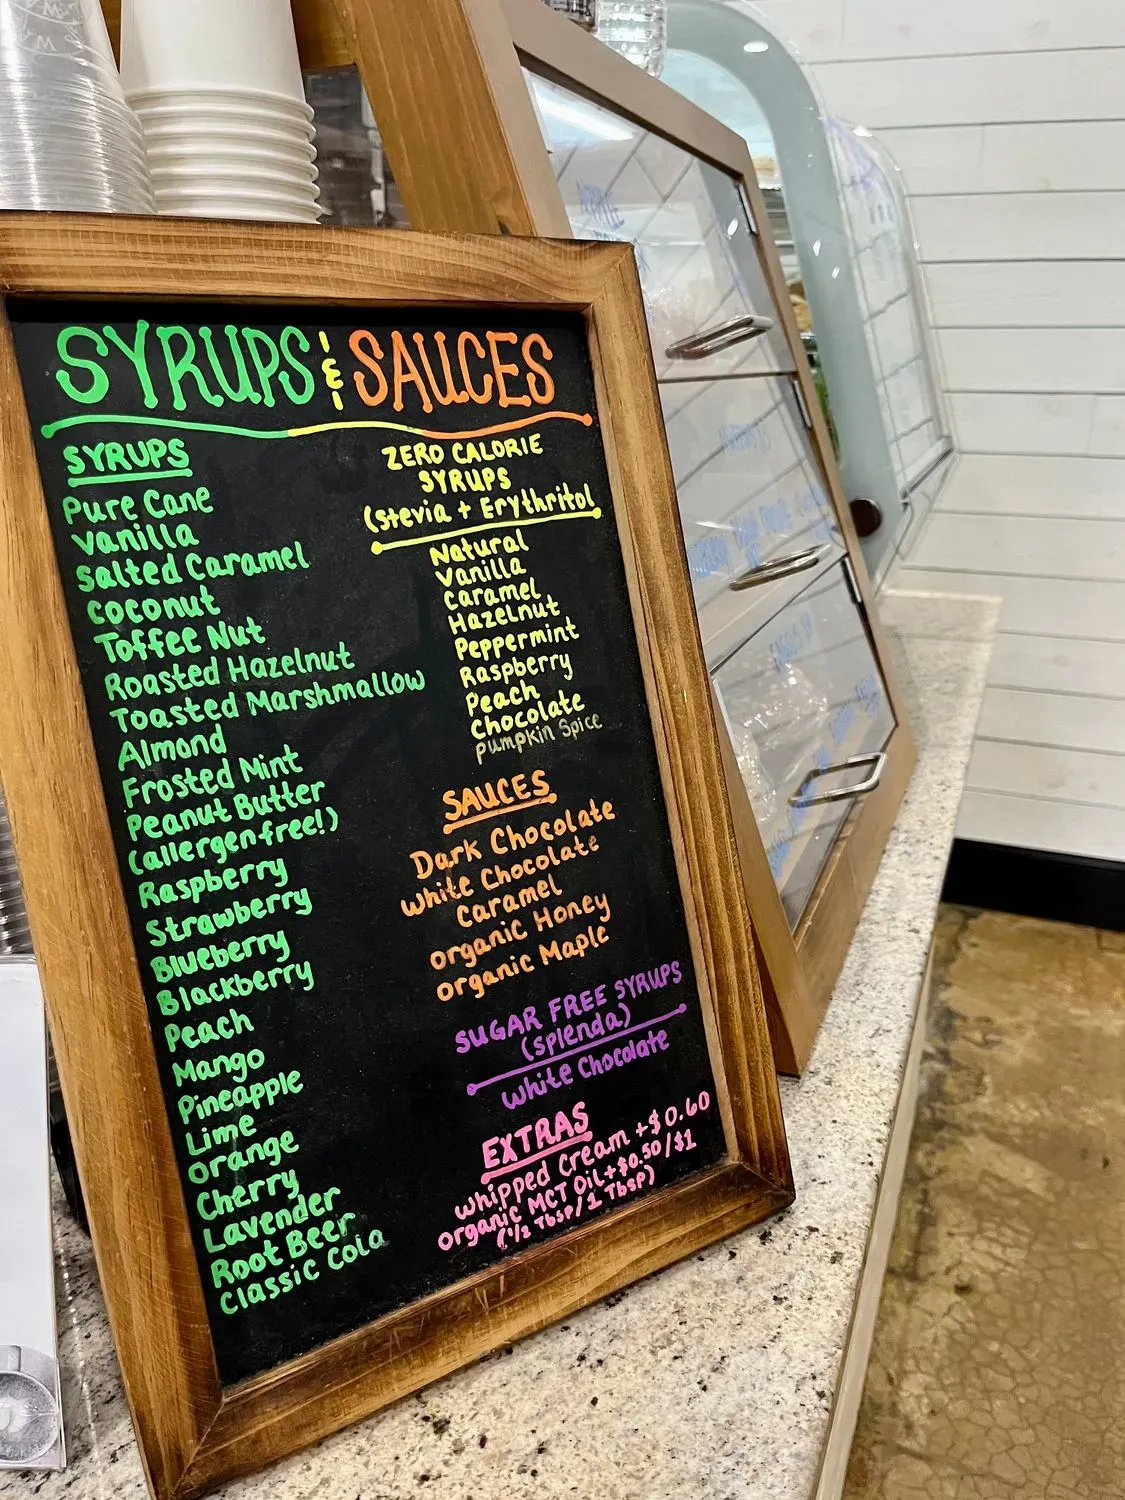 SYRUPS & SAUCES
SYRUPS
Pure Cane
Vanilla
Salted Caramel
Coconut
Toffee Nut
Roasted Hazelnut
Toasted Marshmallow
Almond
Frosted Mint
Peanut Butter
(allergen free!)
Raspberry
Strawberry
Blueberry
Blackberry
Peach
Mango
Pineapple
Lime
Orange
Cherry
Lavender
Root Beer
Classic Cola
ZERO CALORIE
SYRUPS
(Stevia + Erythritol
Natural
Vanilla
Caramel
Hazelnut
Peppermint
Raspberry
Peach
Chocolate
Pumpkin Spice
SAUCES
Dark Chocolate
White Chocolate
Caramel
Organic Honey
Organic Maple
SUGAR FREE SYRUPS
(splenda)
White Chocolate
EXTRAS
Whipped Cream +$0.60
Organic MCT Oil +$0.50/$1
(1/2 Tbsp/1 Tbsp)